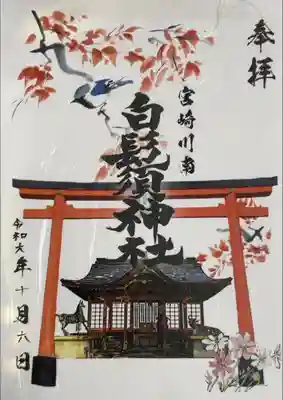 奉拝
宮崎川南
白髭須神社
令和六年十月六日